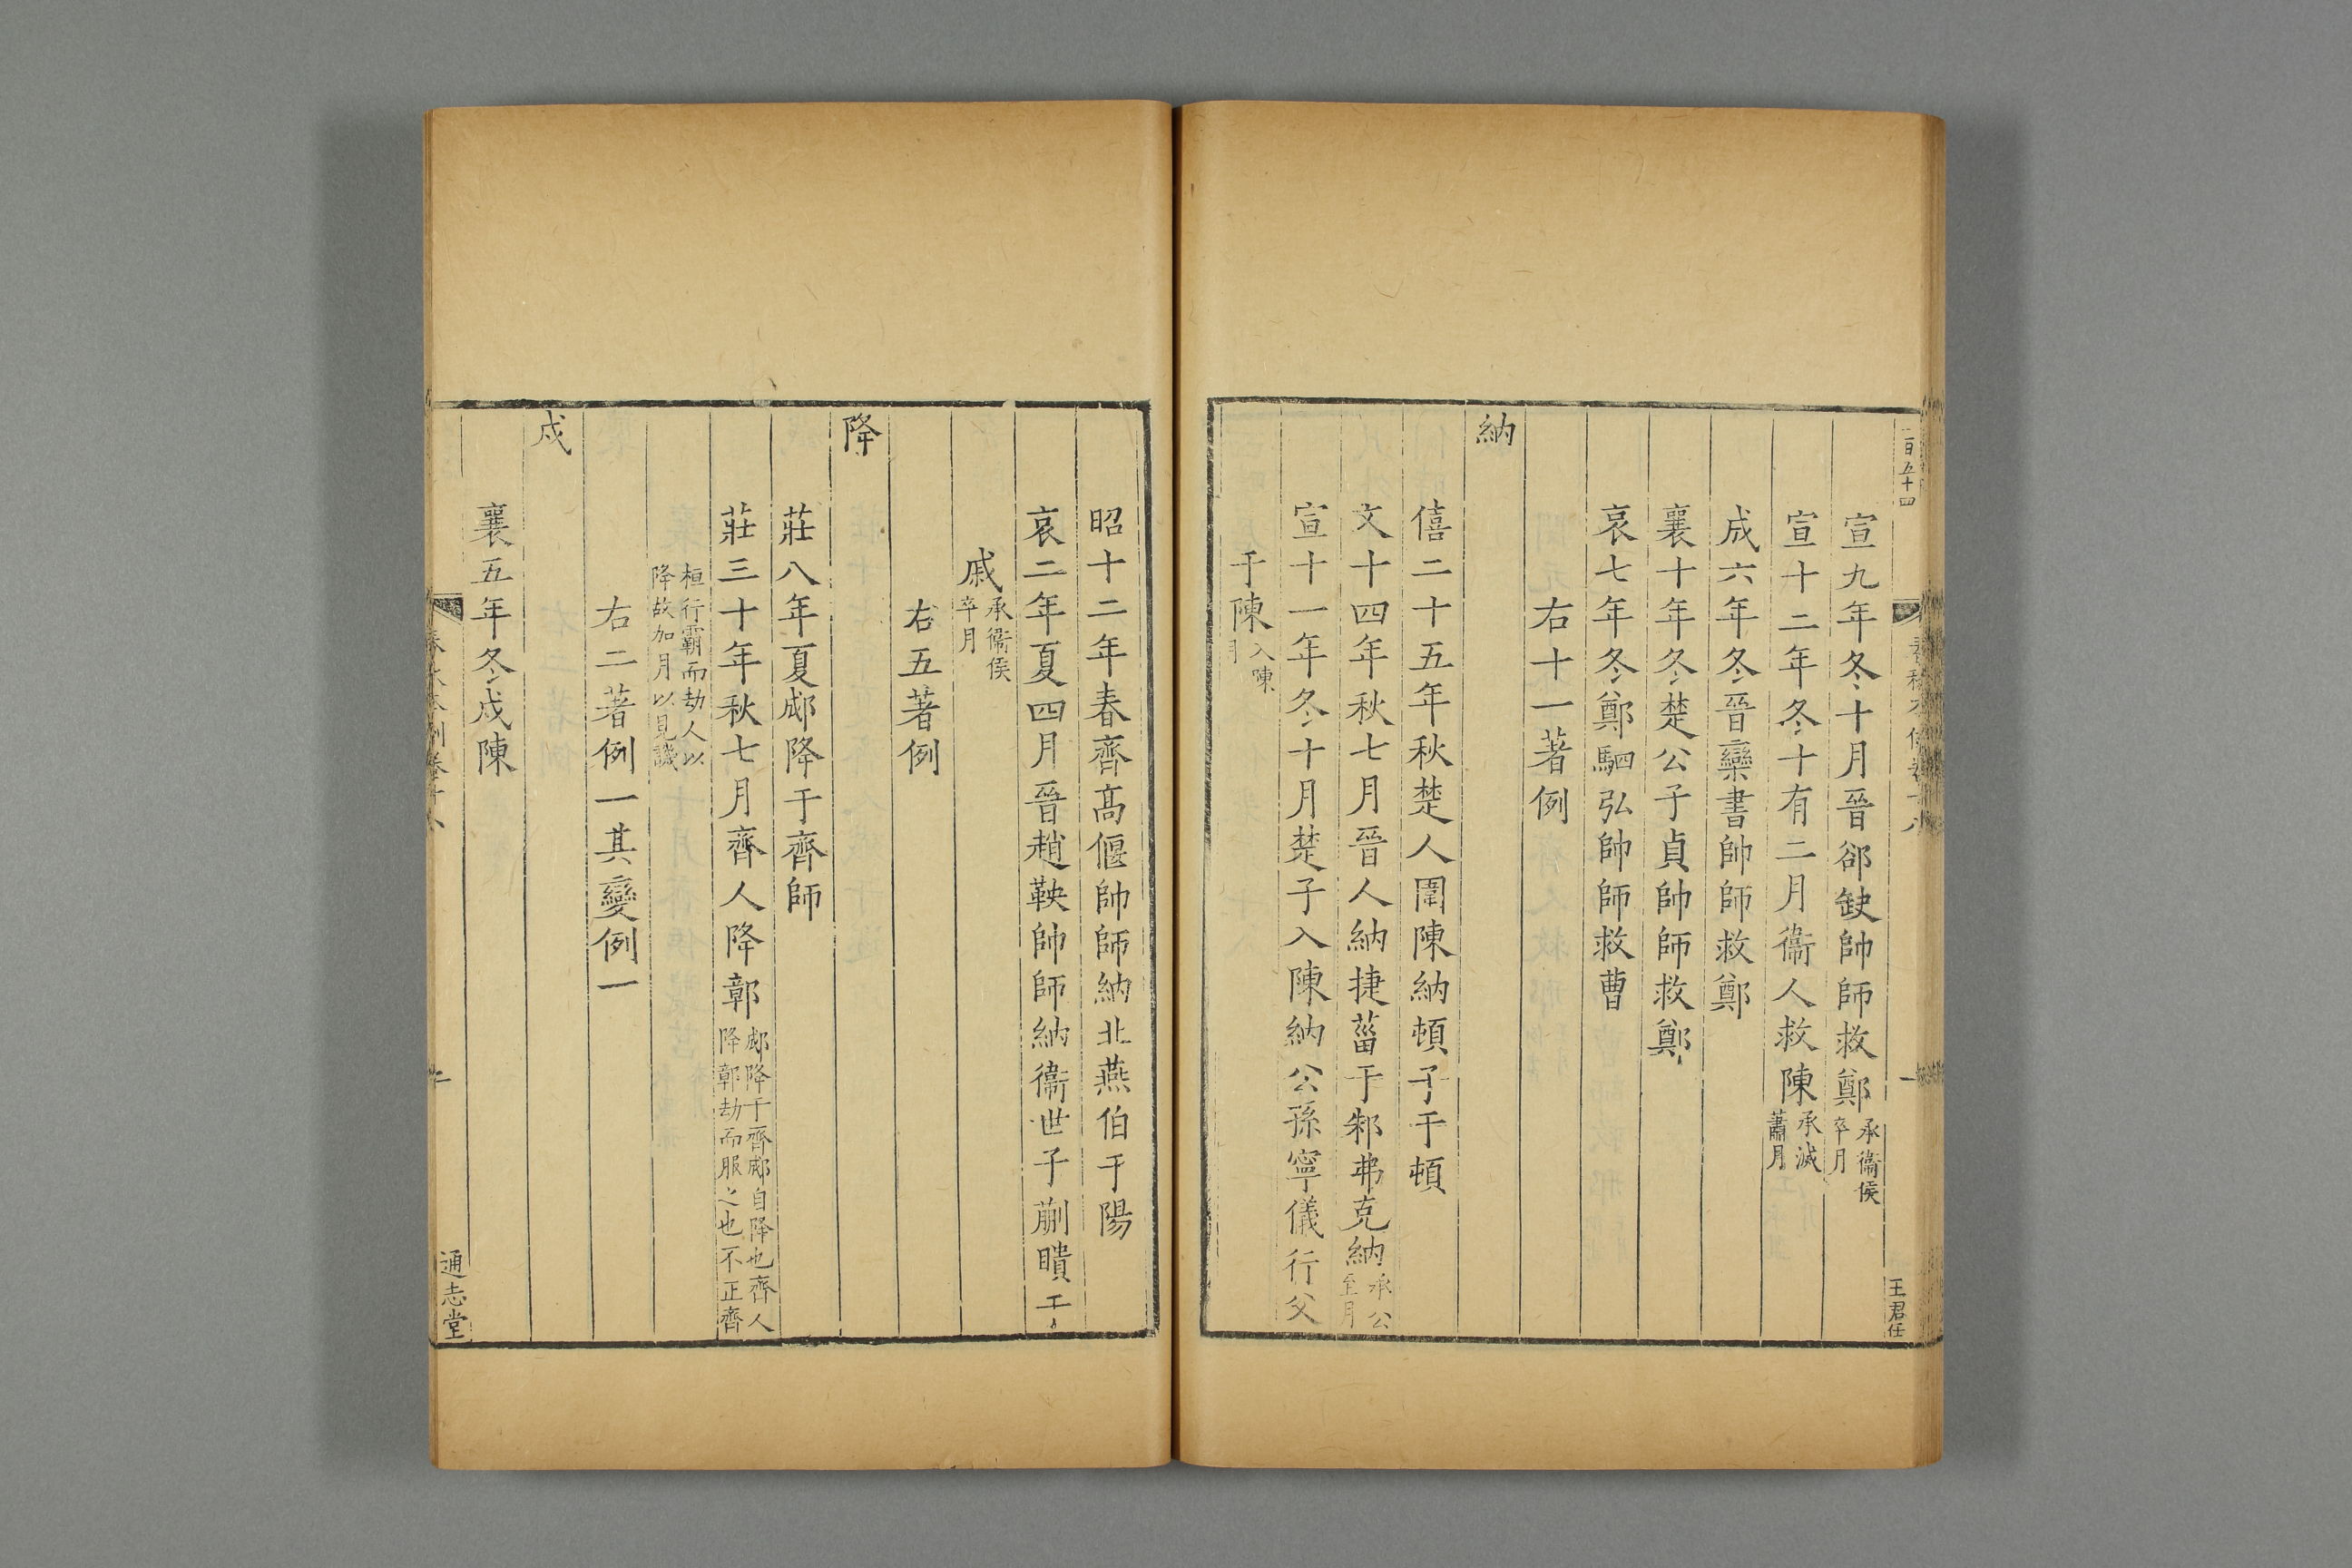 一百五十四
王君任
宣九年冬十月晉郤缺帥師救鄭承衞侯卒月
宣十二年冬十有二月衞人救陳承滅蕭月
成六年冬晉欒書帥師救鄭
襄十年冬楚公子貞帥師救鄭
哀七年冬鄭駟弘帥師救曹
右十一著例
納
僖二十五年秋楚人圍陳納頓子于頓
文十四年秋七月晉人納捷菑于邾弗克納承公至月
宣十一年冬十月楚子入陳納公孫寧儀行父
于陳入陳月
昭十二年春齊高偃帥師納北燕伯于陽
哀二年夏四月晉趙鞅帥師納衞世子蒯聵于
戚承衞侯卒月
右五著例
降
莊八年夏郕降于齊師
莊三十年秋七月齊人降鄣郕降于齊郕自降也齊人降鄣劫而服之也不正齊
桓行霸而劫人以降故加月以見譏
右二著例一其變例一
戍
襄五年冬戍陳
通志堂